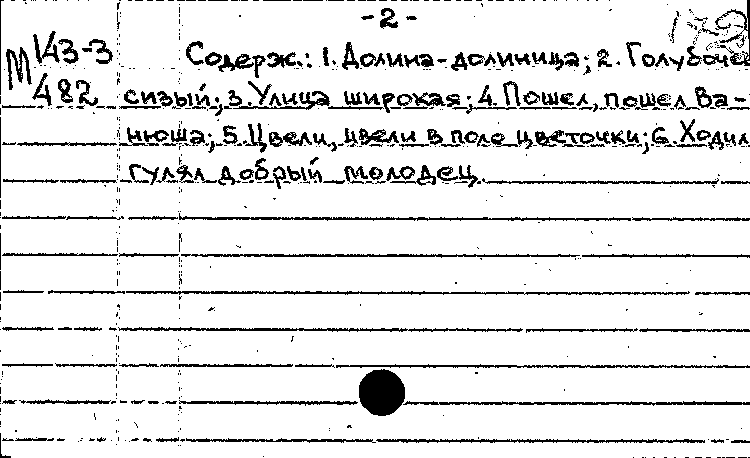 - 2 -
172
М 143-3
482
Содерж.: 1. Долина-долиница; 2. Голубоче
сизый; 3. Улица широкая; 4. Пошел, пошел Ва-
нюша; 5. Цвели, цвели в поле цветочки; 6. Ходил
гулял добрый молодец.